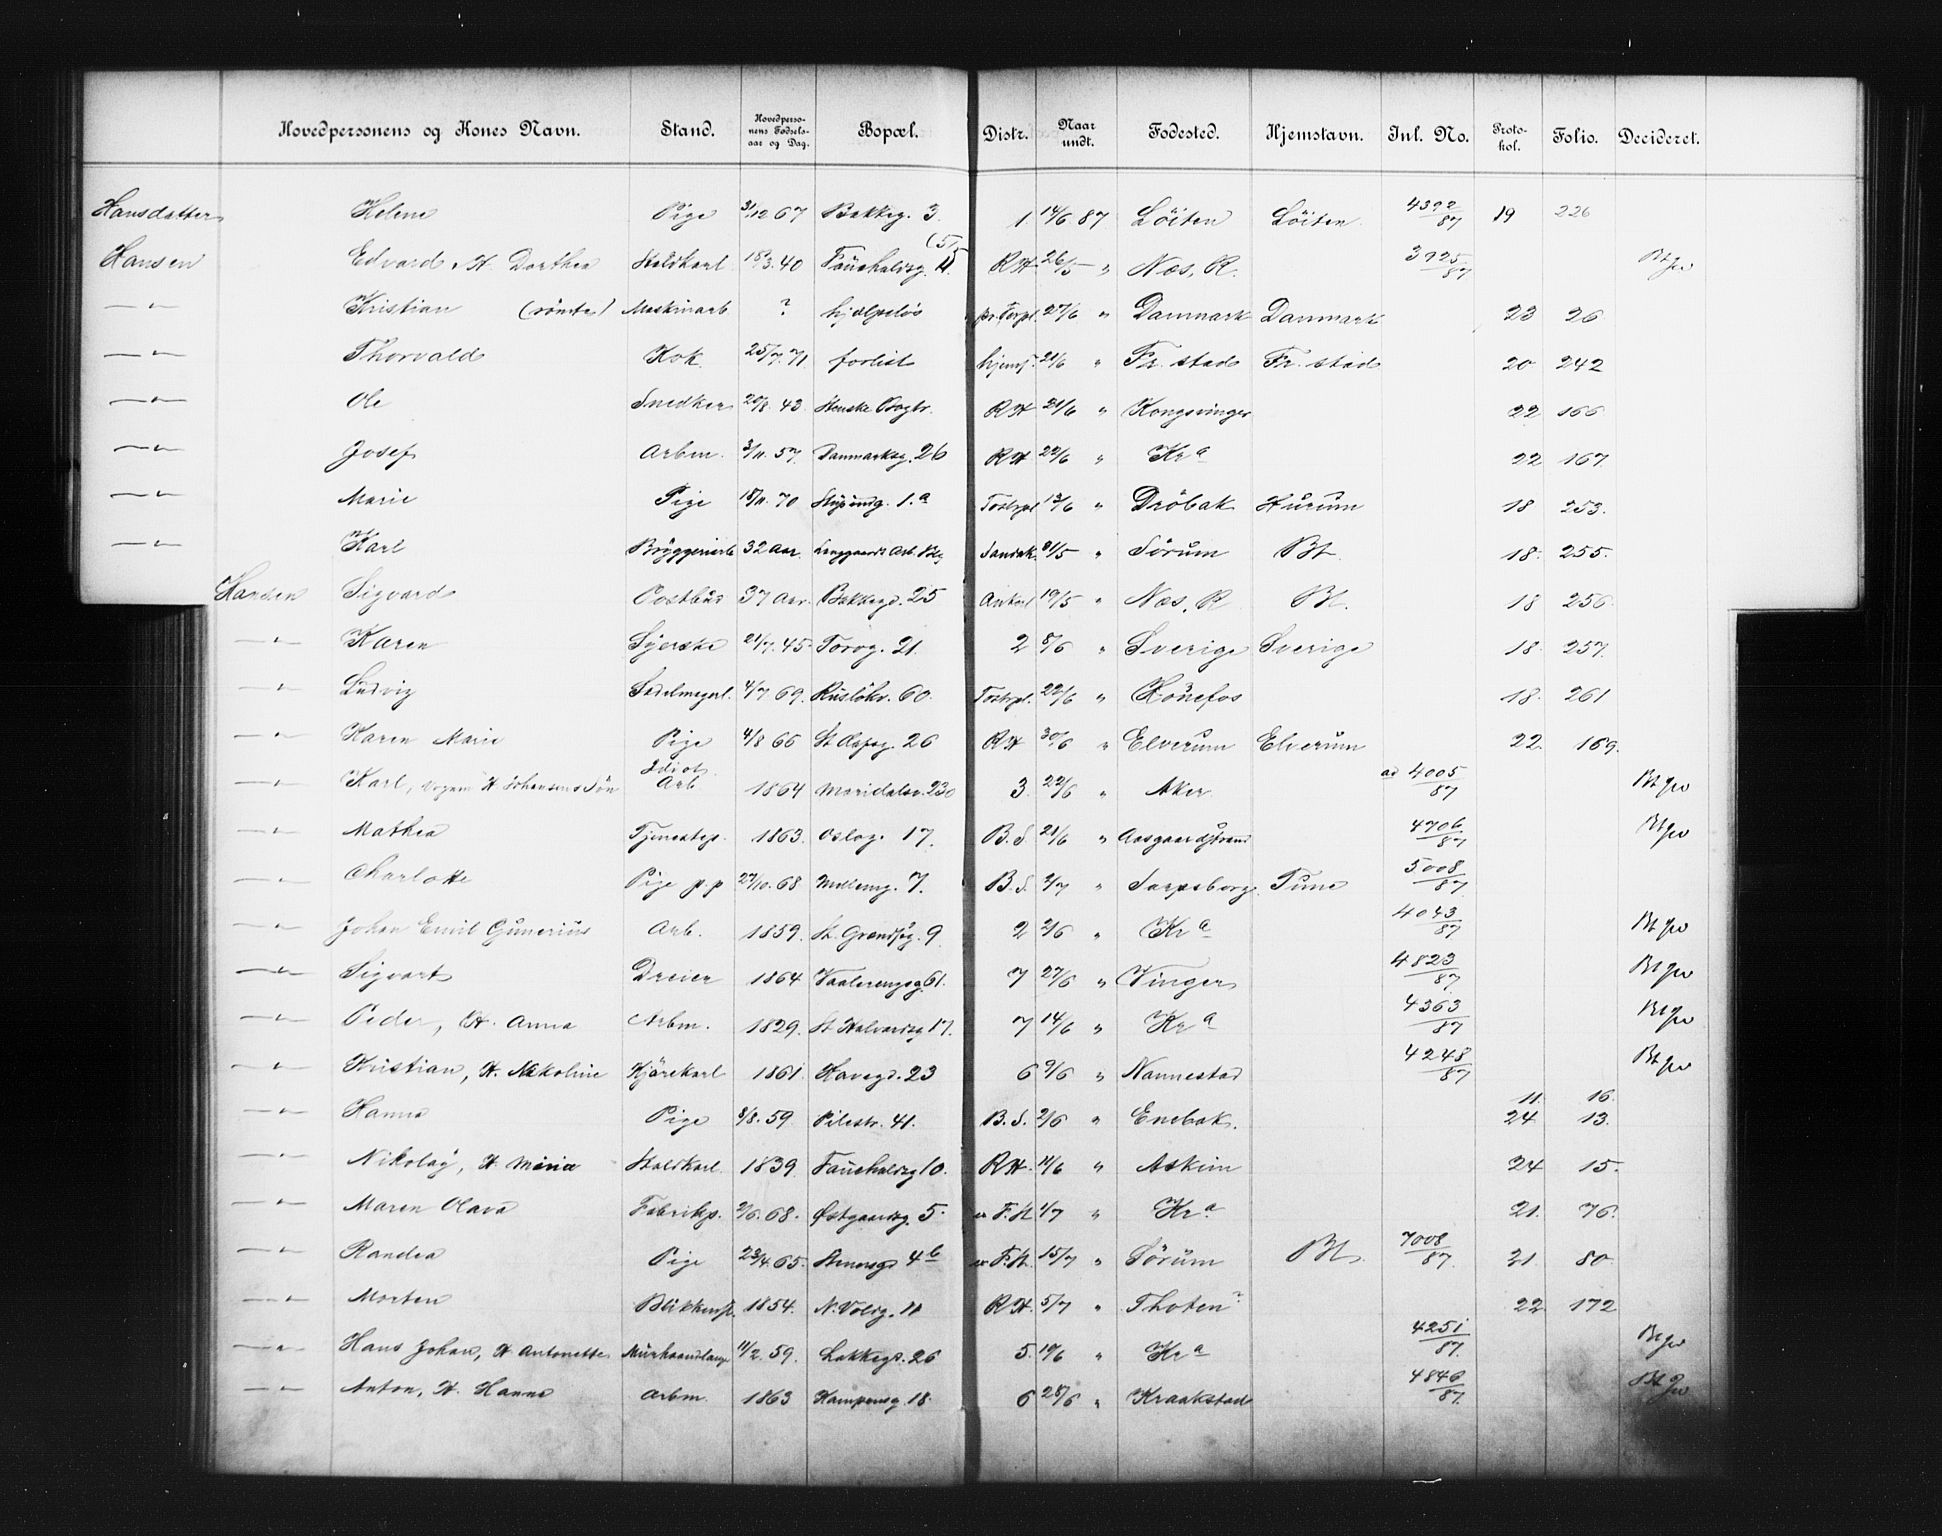 Hovedpersonens og Kones Navn. Stand. Hovedpersonens Fødselsaar og Dag. Bopæl. Distr. Naar undt. Fødested. Hjemstavn. Inl. No. Protokol. Folio. Decideret.
Hansdatter Helene Pige 31/12 67 Bakkeg. 3. 1 14/6 87 Löiten Löiten 4392/87 19 226
Hansen Edvard, H. Dorthea Staldkarl 18/3. 40 Fauchaldsg. RH 26/5 " Næs, R. 3925/87
—"— Kristian (römte) Maskinarb ? hjælpelös 27/6 " Danmark Danmark 23 26
—"— Thorvald Kok 25/7. 71 forlist hjemf. 21/6 " Fr. stad Fr. stad 20 242
—"— Ole Snedker 20/8. 43. RH 21/6 " Kongsvinger 22 166
—"— Josef Arbm. 3/11. 57. Danmarksg. 26 RH 22/6 " Kra 22 167.
—"— Marie Pige 18/11. 70 1.a 13/6 " Dröbak Hurum 18 253.
—"— Karl Bryggeriarb 32 Aar. 31/5 " Sörum Bt. 18. 255.
Hansen Sigvard Postbud 37 Aar. Bakkegd. 25 19/5 " Næs, R Bt. 18 256.
—"— Karen Syerske 21/7. 45 Torvg. 21. 2 8/6 " Sverige Sverige 18. 257.
—"— Ludvig Sadelmagerl. 4/7 69. Ruslökv. 60. 22/6 " Hönefos 18. 261
—"— Karen Marie Pige 4/8 66 St. Olafsg. 26 RH 30/6 " Elverum Elverum 22. 169.
—"— Karl, Vognm H Johansens Sön Idiot Arb. 1864 Maridalsv. 230 3. 22/6 " Aker. ad 4005/87
—"— Mathea Tjenestep. 1863. Oslog. 17. B.S. 21/6 " Aasgaardstrand 4706/87
—"— Charlotte Pige p.p 27/10. 68 Mellemg. 7. B.S. 2/7 " Sarpsborg. Tune 5008/87
—"— Johan Emil Gunerius Arb. 1859. St. Grændsg. 9. 2 2/6 " Kra 4043/87
—"— Sigvart Dreier 1864 Vaalerengsg. 61. 7 27/6 " Vinger 4823/87
—"— Peder, H. Anna Arbm. 1829. St Halvardsg 17. 7 14/6 " Kra 4363/87
—"— Kristian, H. Nikoline Kjörekarl 1861. Havegd. 23 6 9/6 " Nannestad 4248/87
—"— Hanna Pige 8/8. 59. Pilestr. 41. B.S. 2/6 " Enebak. 11. 16. 24 13.
—"— Nikolay, H. Maria Staldkarl. 1839. Fauchaldsg 10. RH. 11/6 " Askim 24 15.
—"— Maren Olava Fabrikp. 2/6. 68. Østgaardsg. 5. F.H. 4/7 " Kra 21. 76.
—"— Randea Pige 23/4. 65. Stenersgd 4b F.H. 15/7 " Sörum Bt. 7008/87. 21. 80.
—"— Morten Blikkensl. 1854. N. Voldg. 11 RH. 5/7 " Thoten? 22 172
—"— Hans Johan, H. Antonette Murhaandlanger 11/2. 59. Lakkegd. 26 5. 10/6 " Kra 4251/87.
—"— Anton, H. Hanna Arbm. 1863 Kampensg. 18. 6 28/6 " Kraakstad 4846/87.